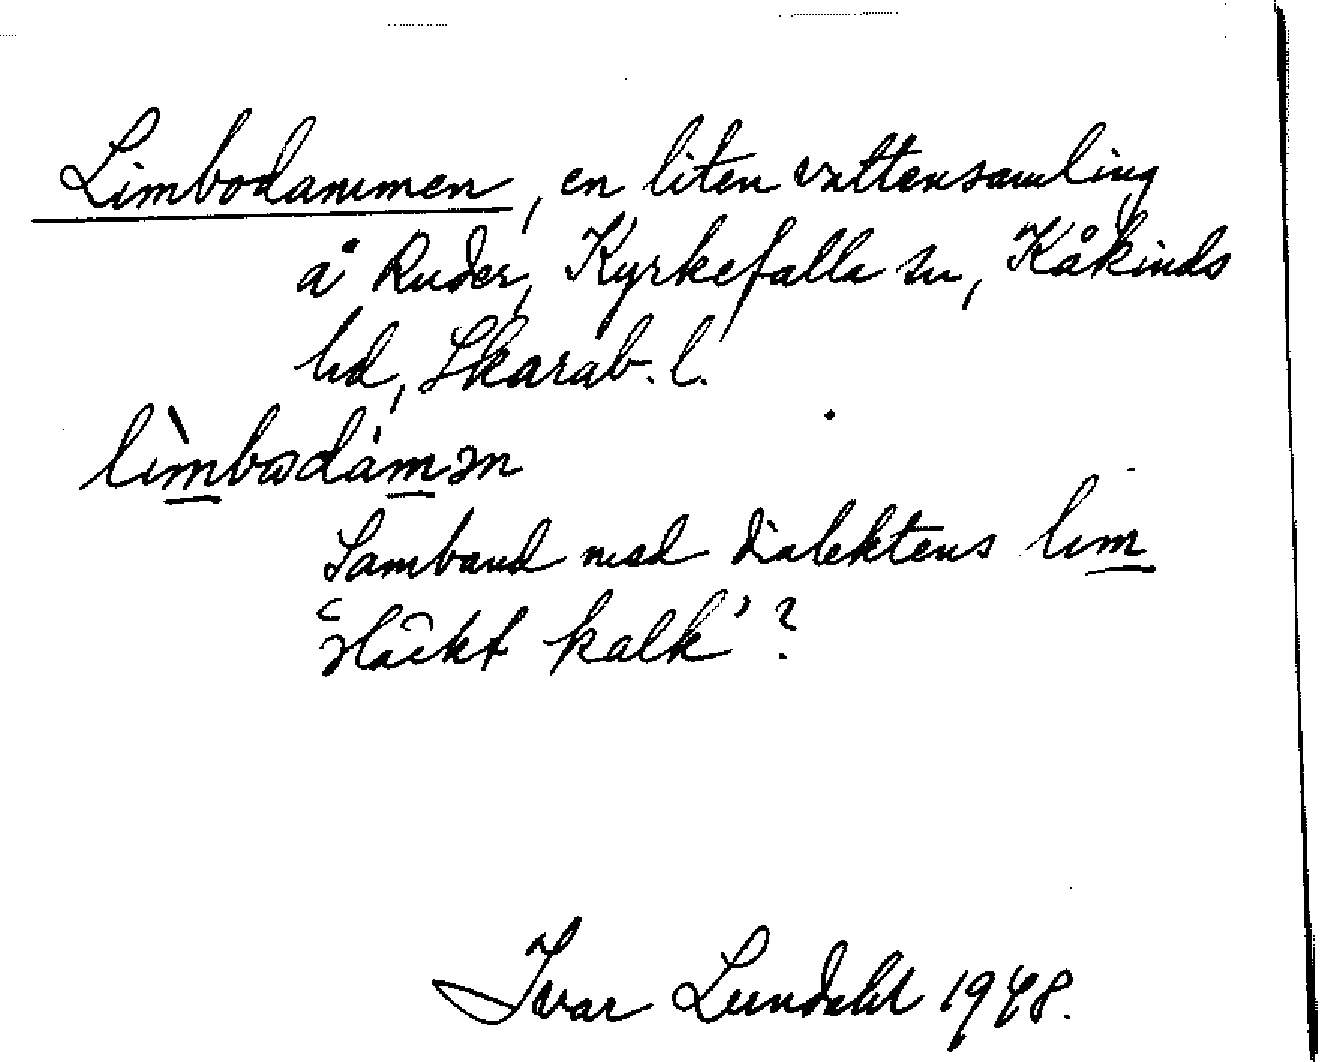 Limbodammen, en liten vattensamling
å Ruder, Kyrkefalla sn, Kåkinds
hd, Skarab. l.
lìmbωdámən
Samband med dialektens lim
'släckt kalk'?
Ivar Lundahl 1948.